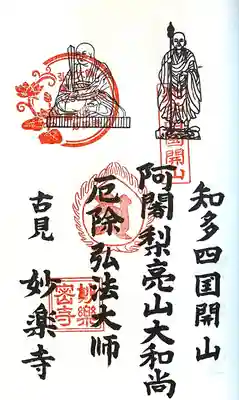 知多四国開山
阿闍梨亮山大和尚
厄除弘法大師
古見
妙楽寺
妙樂
密寺